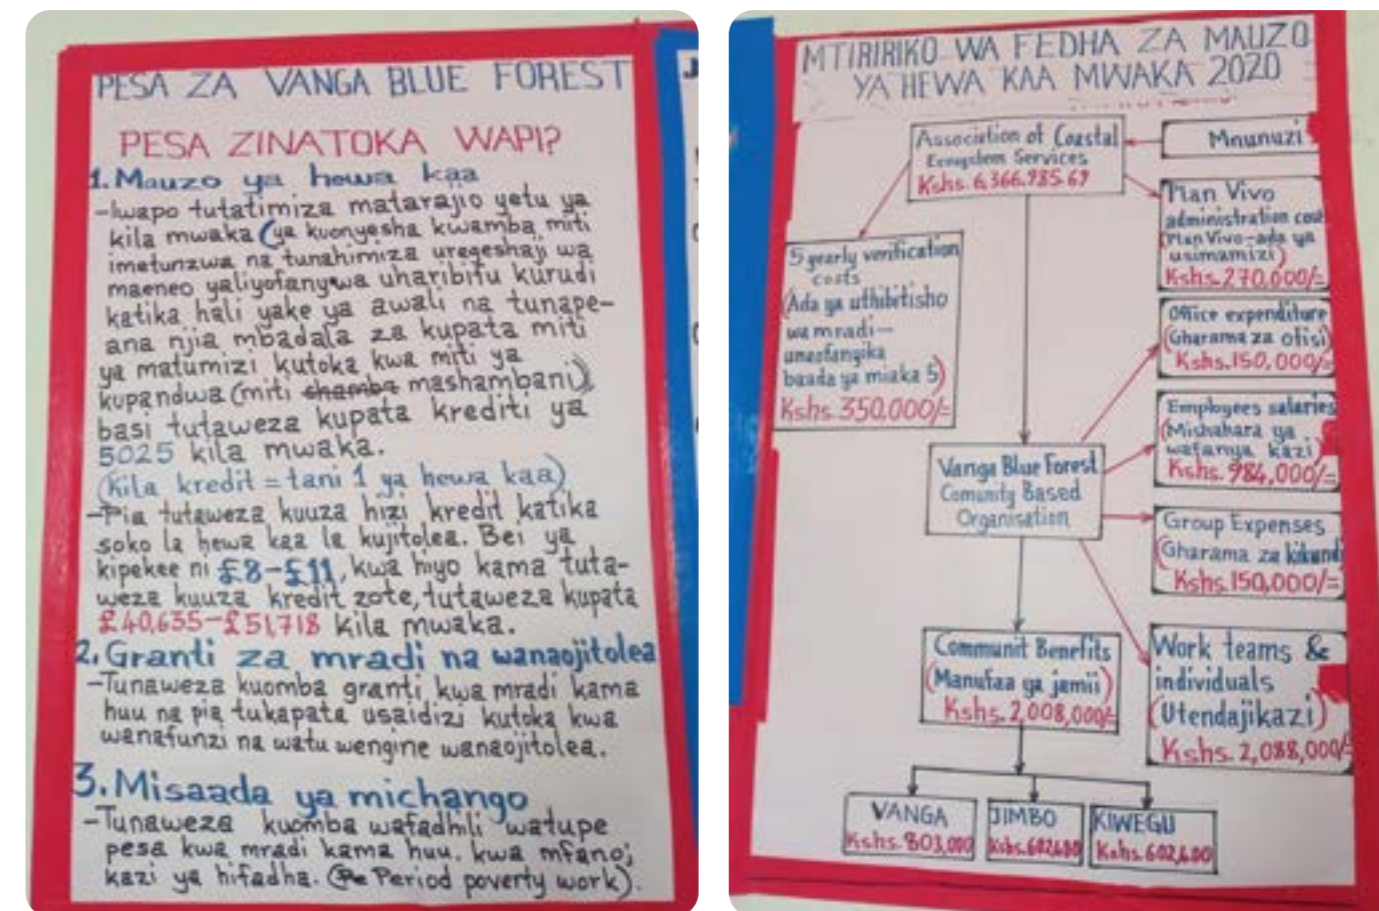 PESA ZA VANGA BLUE FOREST
PESA ZINATOKA WAPI?
1. Mauzo ya hewa kaa
-Iwapo tutatimiza matarajio yetu ya
kila mwaka (ya kuonyesha kwamba miti
imetunzwa na tunahimiza uregeshaji wa
maeneo yaliyofanywa uharibifu kurudi
katika hali yake ya awali na tunape-
ana njia mbadala za kupata miti
ya matumizi kutoka kwa miti ya
kupandwa (miti shamba mashambani)
basi tutaweza kupata krediti ya
5025 kila mwaka.
(Kila kredit = tani 1 ya hewa kaa)
-Pia tutaweza kuuza hizi kredit katika
soko la hewa kaa la kujitolea. Bei ya
kipekee ni £8-£11, kwa hiyo kama tuta-
weza kuuza kredit zote, tutaweza kupata
£40,635-£51,718 kila mwaka.
2. Granti za mradi na wanaojitolea
-Tunaweza kuomba granti kwa mradi kama
huu na pia tukapata usaidizi kutoka kwa
wanafunzi na watu wengine wanaojitolea.
3. Misaada ya michango
-Tunaweza kuomba wafadhili watupe
pesa kwa mradi kama huu. kwa mfano;
kazi ya hifadha. (Period poverty work).
MTIRIRIKO WA FEDHA ZA MAUZO
YA HEWA KAA MWAKA 2020
Association of Coastal
Ecosystem Services
Kshs. 6,366,985.69
Mnunuzi
Plan Vivo
administration cost
(Plan Vivo-ada ya
usimamizi)
Kshs. 270,000/=
5 yearly verification
costs
(Ada ya uthibitisho
wa mradi-
unaofanyika
baada ya miaka 5)
Kshs. 350,000/=
Office expenditure
(Gharama za ofisi)
Kshs. 150,000/=
Employees salaries
(Mishahara ya
wafanya kazi)
Kshs. 984,000/=
Vanga Blue Forest
Comunity Based
Organisation
Group Expenses
(Gharama za kikundi
Kshs. 150,000/=
Communit Benefits
(Manufaa ya jamii)
Kshs. 2,008,000/=
Work teams &
individuals
(Utendajikazi)
Kshs. 2,088,000/=
VANGA
Kshs. 803,000
JIMBO
Kshs. 602,600
KIWEGU
Kshs. 602,600